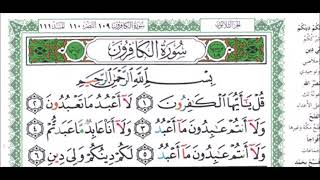 الجزء الثلاثون سورة الكافرون ١٠٩ النصر ١١٠ المسد ١١١
سُورَةُ الكَافِرُونَ
بِسْمِ اللَّهِ الرَّحْمَٰنِ الرَّحِيمِ
قُلْ يَٰٓأَيُّهَا ٱلْكَٰفِرُونَ ١ لَآ أَعْبُدُ مَا تَعْبُدُونَ ٢
وَلَآ أَنتُمْ عَٰبِدُونَ مَآ أَعْبُدُ ٣ وَلَآ أَنَا۠ عَابِدٌ مَّا عَبَدتُّمْ
وَلَآ أَنتُمْ عَٰبِدُونَ مَآ أَعْبُدُ ٥ لَكُمْ دِينُكُمْ وَلِىَ دِينِ ٦